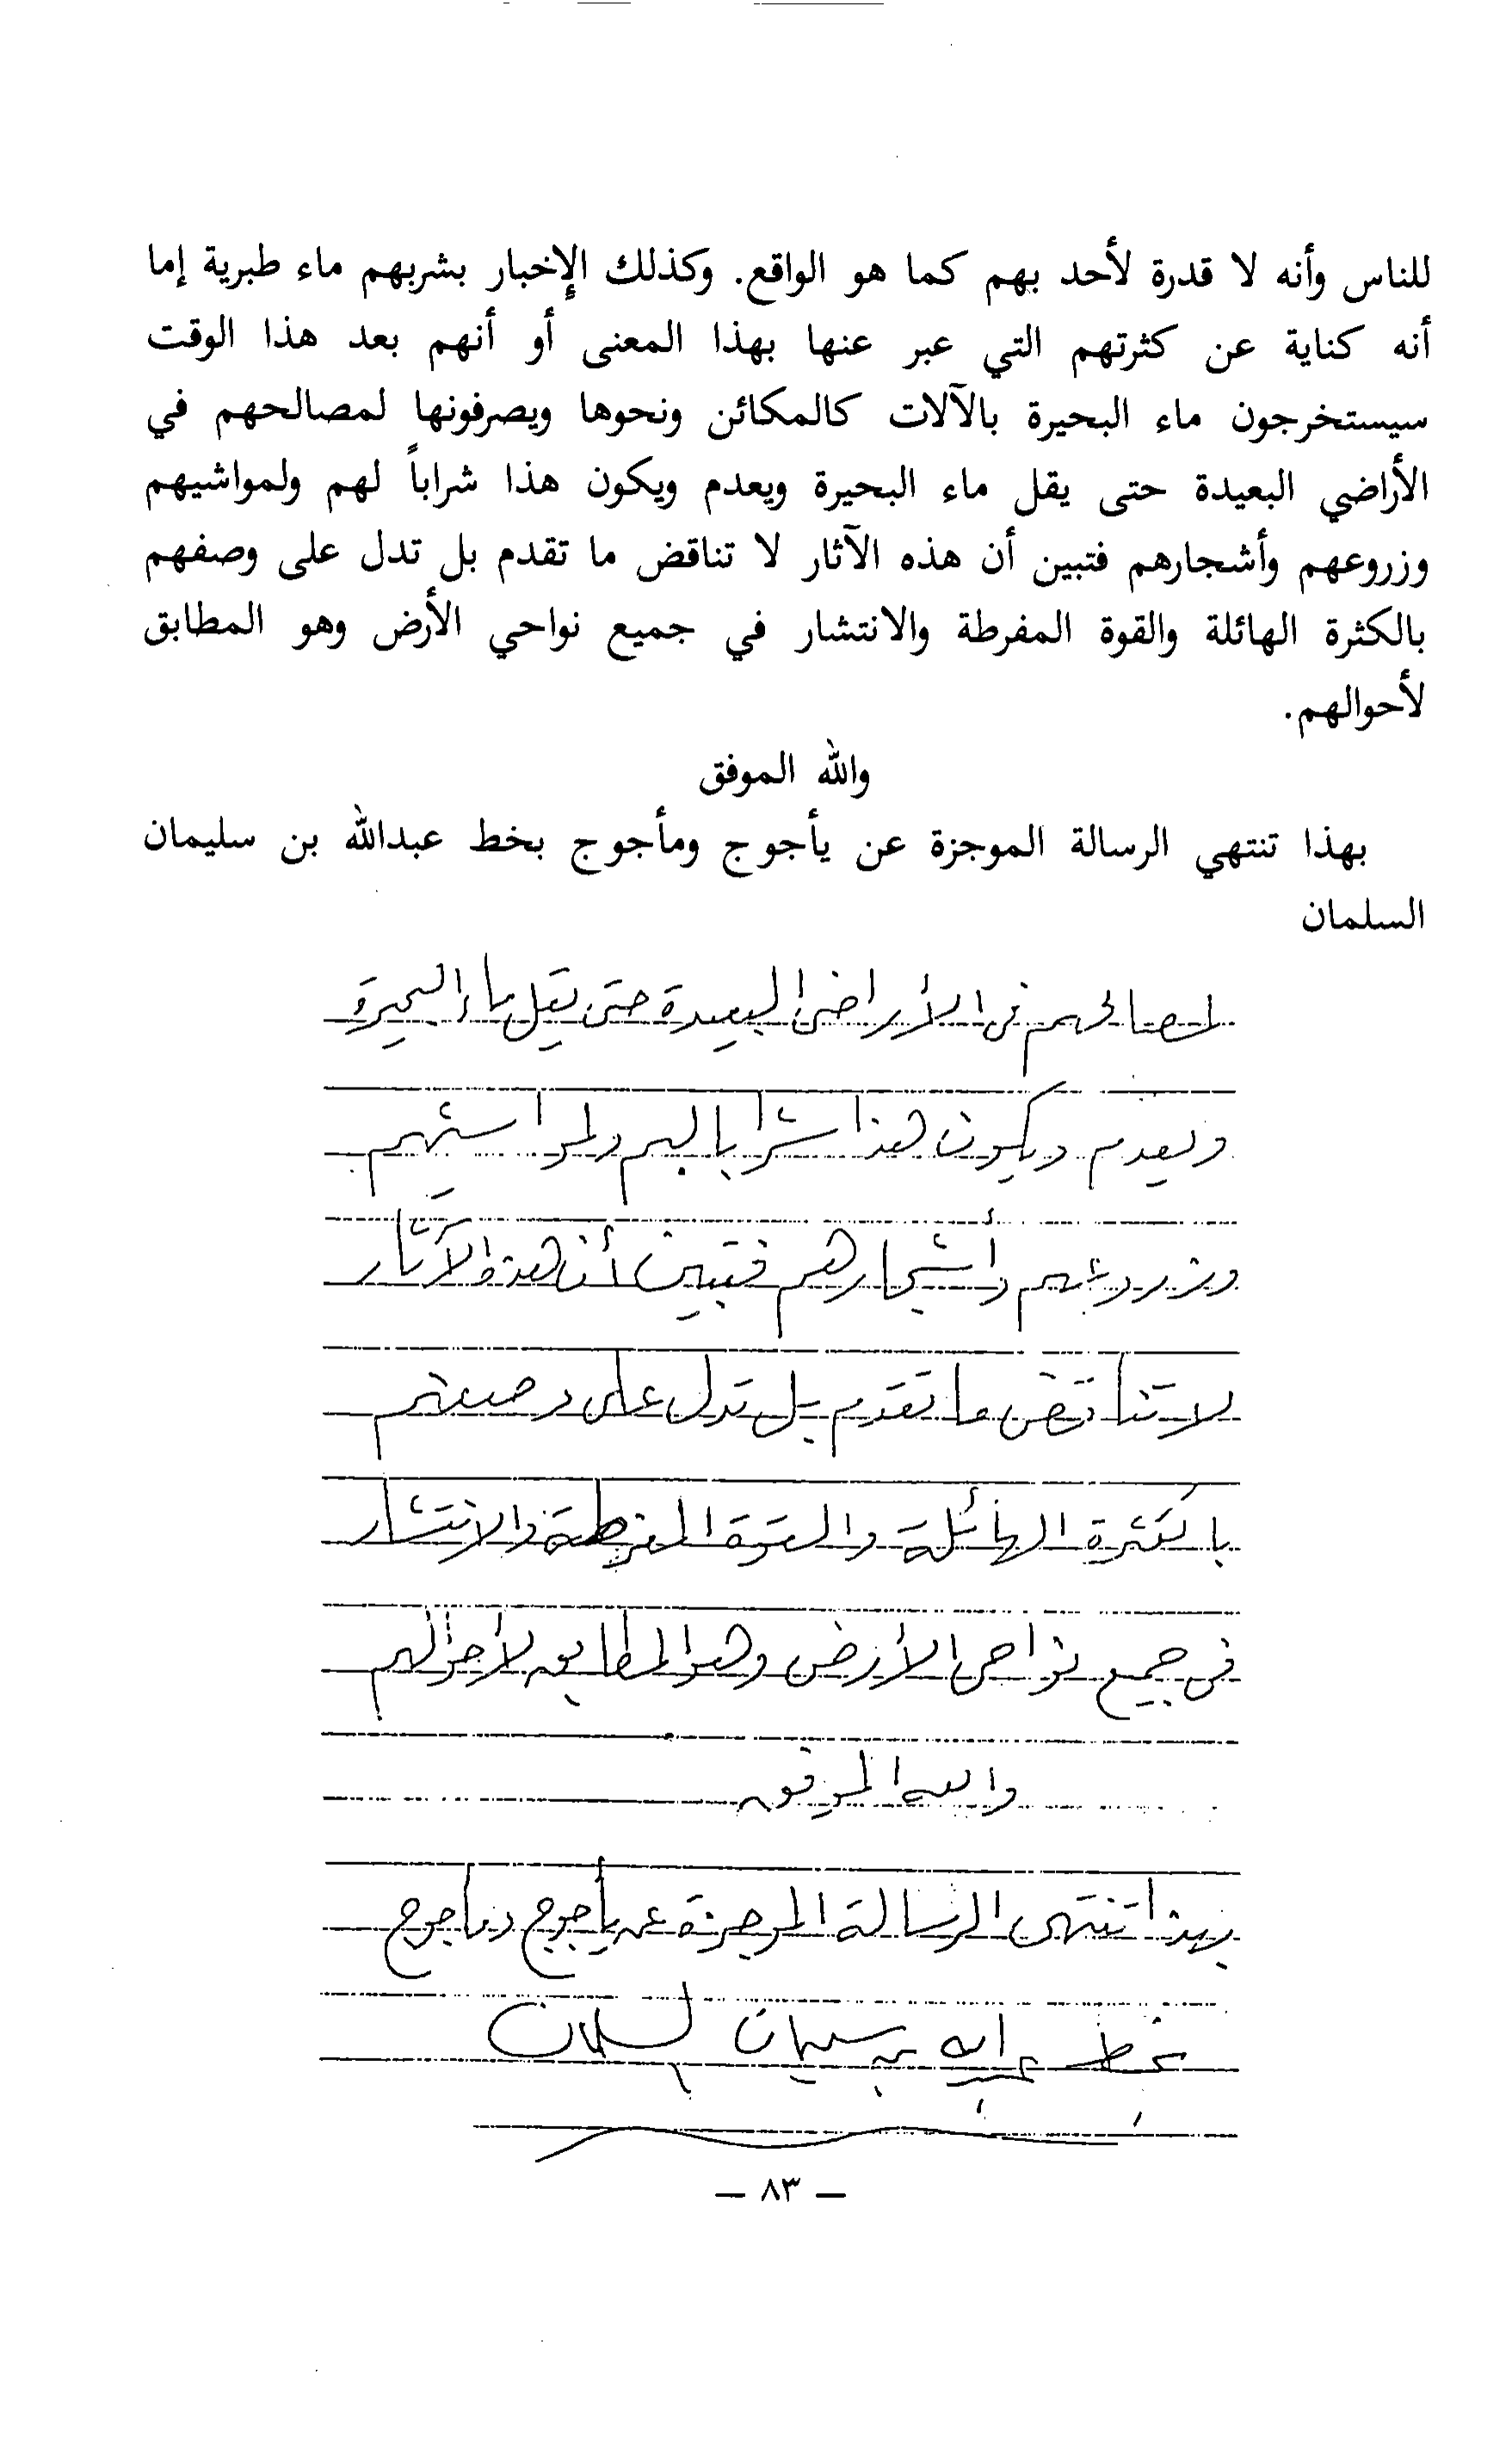 للناس وأنه لا قدرة لأحد بهم كما هو الواقع. وكذلك الإخبار بشربهم ماء طبرية إما
أنه كناية عن كثرتهم التي عبر عنها بهذا المعنى أو أنهم بعد هذا الوقت
سيستخرجون ماء البحيرة بالآلات كالمكائن ونحوها ويصرفونها لمصالحهم في
الأراضي البعيدة حتى يقل ماء البحيرة ويعدم ويكون هذا شراباً لهم ولمواشيهم
وزروعهم وأشجارهم فتبين أن هذه الآثار لا تناقض ما تقدم بل تدل على وصفهم
بالكثرة الهائلة والقوة المفرطة والانتشار في جميع نواحي الأرض وهو المطابق
لأحوالهم.
والله الموفق
بهذا تنتهي الرسالة الموجزة عن يأجوج ومأجوج بخط عبدالله بن سليمان
السلمان
لمصالحهم فى الأراضى البعيدة حتى يقل ماء البحيرة
ويعدم ويكون هذا شرابا لهم ولمواشيهم
وزروعهم وأشجارهم فتبين أن هذه الآثار
لا تناقض ما تقدم بل تدل على وصفهم
بالكثرة الهائلة والقوة المفرطة والانتشار
فى جميع نواحى الأرض وهو المطابق لأحوالهم
والله الموفق
بهذا تنتهى الرسالة الموجزة عن يأجوج ومأجوج
بخط عبدالله بن سليمان السلمان
– ٨٣ –